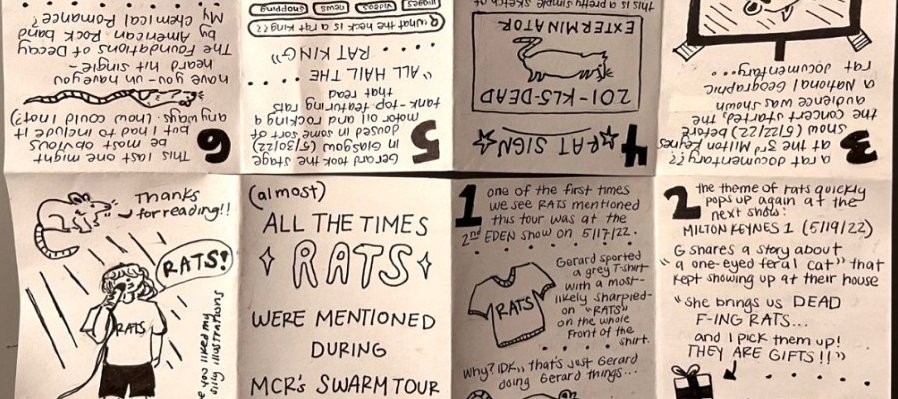 (almost)
ALL THE TIMES
RATS
WERE MENTIONED
DURING
MCR's SWARM TOUR
1
one of the first times
we see RATS mentioned
this tour was at the
2nd EDEN show on 5/17/22.
Gerard sported
a grey T-shirt
with a most-
likely sharpied-
on "RATS"
on the whole
front of the
shirt.
RATS
Why? IDK,, that's just Gerard
doing Gerard things...
2
the theme of rats quickly
pops up again at the
next show:
MILTON KEYNES 1 (5/19/22)
G shares a story about
"a one-eyed feral cat" that
kept showing up at their house
"she brings us DEAD
F-ING RATS...
and I pick them up!
THEY ARE GIFTS!!"
3
a rat documentary??
at the 3rd Milton Keynes
show (5/22/22) before
the concert started, the
audience was shown
a National Geographic
rat documentary...
4
RAT SIGN
201-KLS-DEAD
EXTERMINATOR
this is a pretty simple sketch of
5
Gerard took the stage
in Glasgow (5/30/22)
doused in some sort of
motor oil and rocking a
tank-top featuring rats
that read
"ALL HAIL THE
RAT KING"
what the heck is a rat king??
images videos news shopping
6
This last one might
be most obvious
but I had to include it
any ways. (how could I not?)
have you-un have you
heard hit single-
The Foundations of Decay
by American Rock band
My Chemical Romance?
Thanks
for reading!!
RATS!
RATS
liked my
silly illustrations